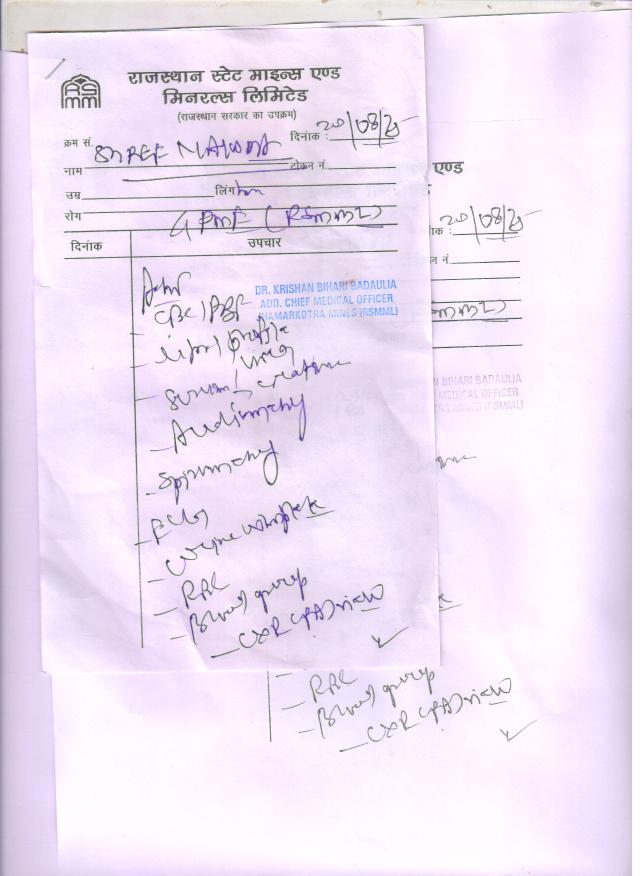 RSMM
राजस्थान स्टेट माइन्स एण्ड
मिनरल्स लिमिटेड
(राजस्थान सरकार का उपक्रम)
क्रम सं. दिनांक : 20/08/25
नाम SHREE टोकन नं.
उम्र लिंग
रोग PME (RSMML)
दिनांक उपचार
Adv
DR. KRISHAN BIHARI BADAULIA
ADD. CHIEF MEDICAL OFFICER
JHAMARKOTRA MINES (RSMML)
- CBC/PBF
- Lipid profile
- Serum / urea creatinine
- Audiometry
- Spirometry
- ECG
- urine complete
- RBS
- Blood group
- CXR (PA) view
एण्ड
ड
नांक : 20/08/25
न नं.
N BIHARI BADAULIA
MEDICAL OFFICER
TRA MINES (RSMML)
- RBS
- Blood group
- CXR (PA) view